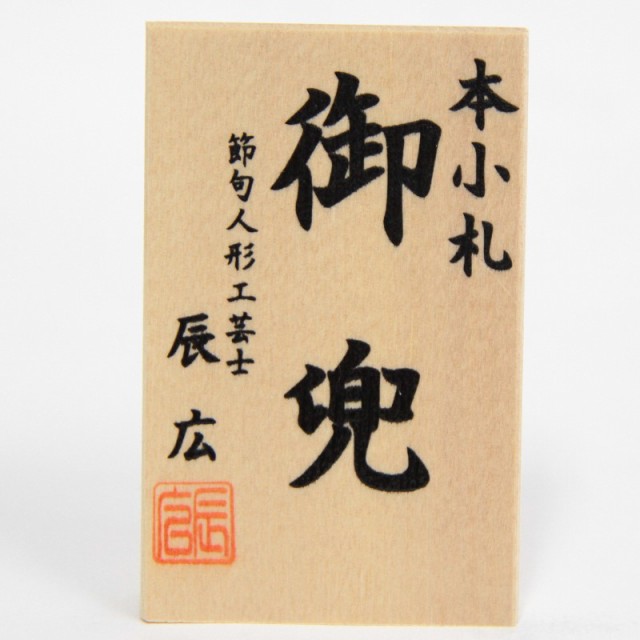 本小札
御兜
節句人形工芸士
辰広
辰広